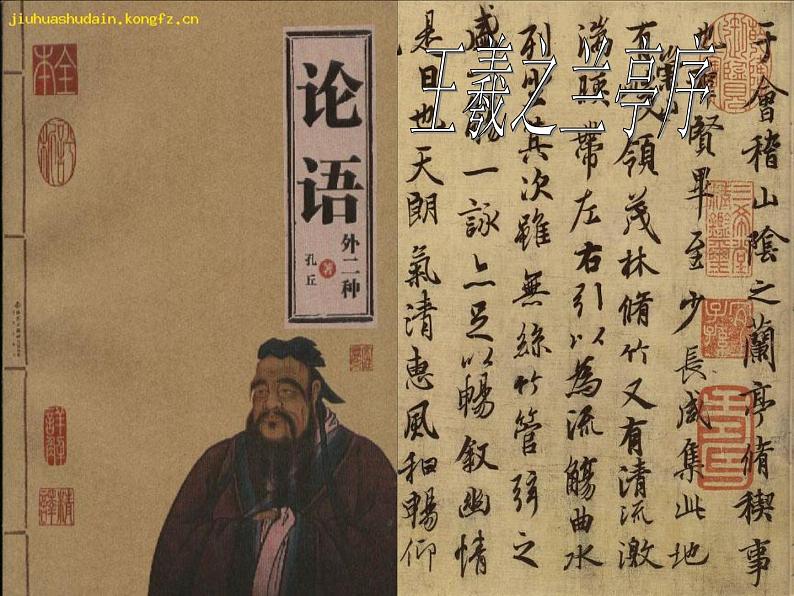 jiuhuashudain.kongfz.cn
全本
论语
外二种
孔丘 著
详解
精译
王羲之兰亭序
于會稽山陰之蘭亭脩稧事
也群賢畢至少長咸集此地
有崇山峻領茂林脩竹又有清流激
湍暎帶左右引以為流觴曲水
列坐其次雖無絲竹管弦之
盛一觴一詠亦足以暢敘幽情
是日也天朗氣清惠風和暢仰